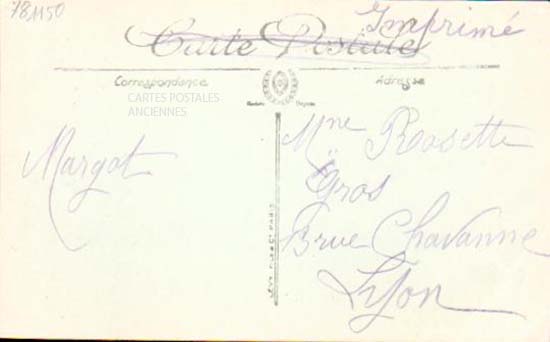 781150
Imprimé
Carte Postale
Correspondance
Adresse
CARTES POSTALES
ANCIENNES
Margot
Mme Rosette
Gros
rue Chavanne
Lyon